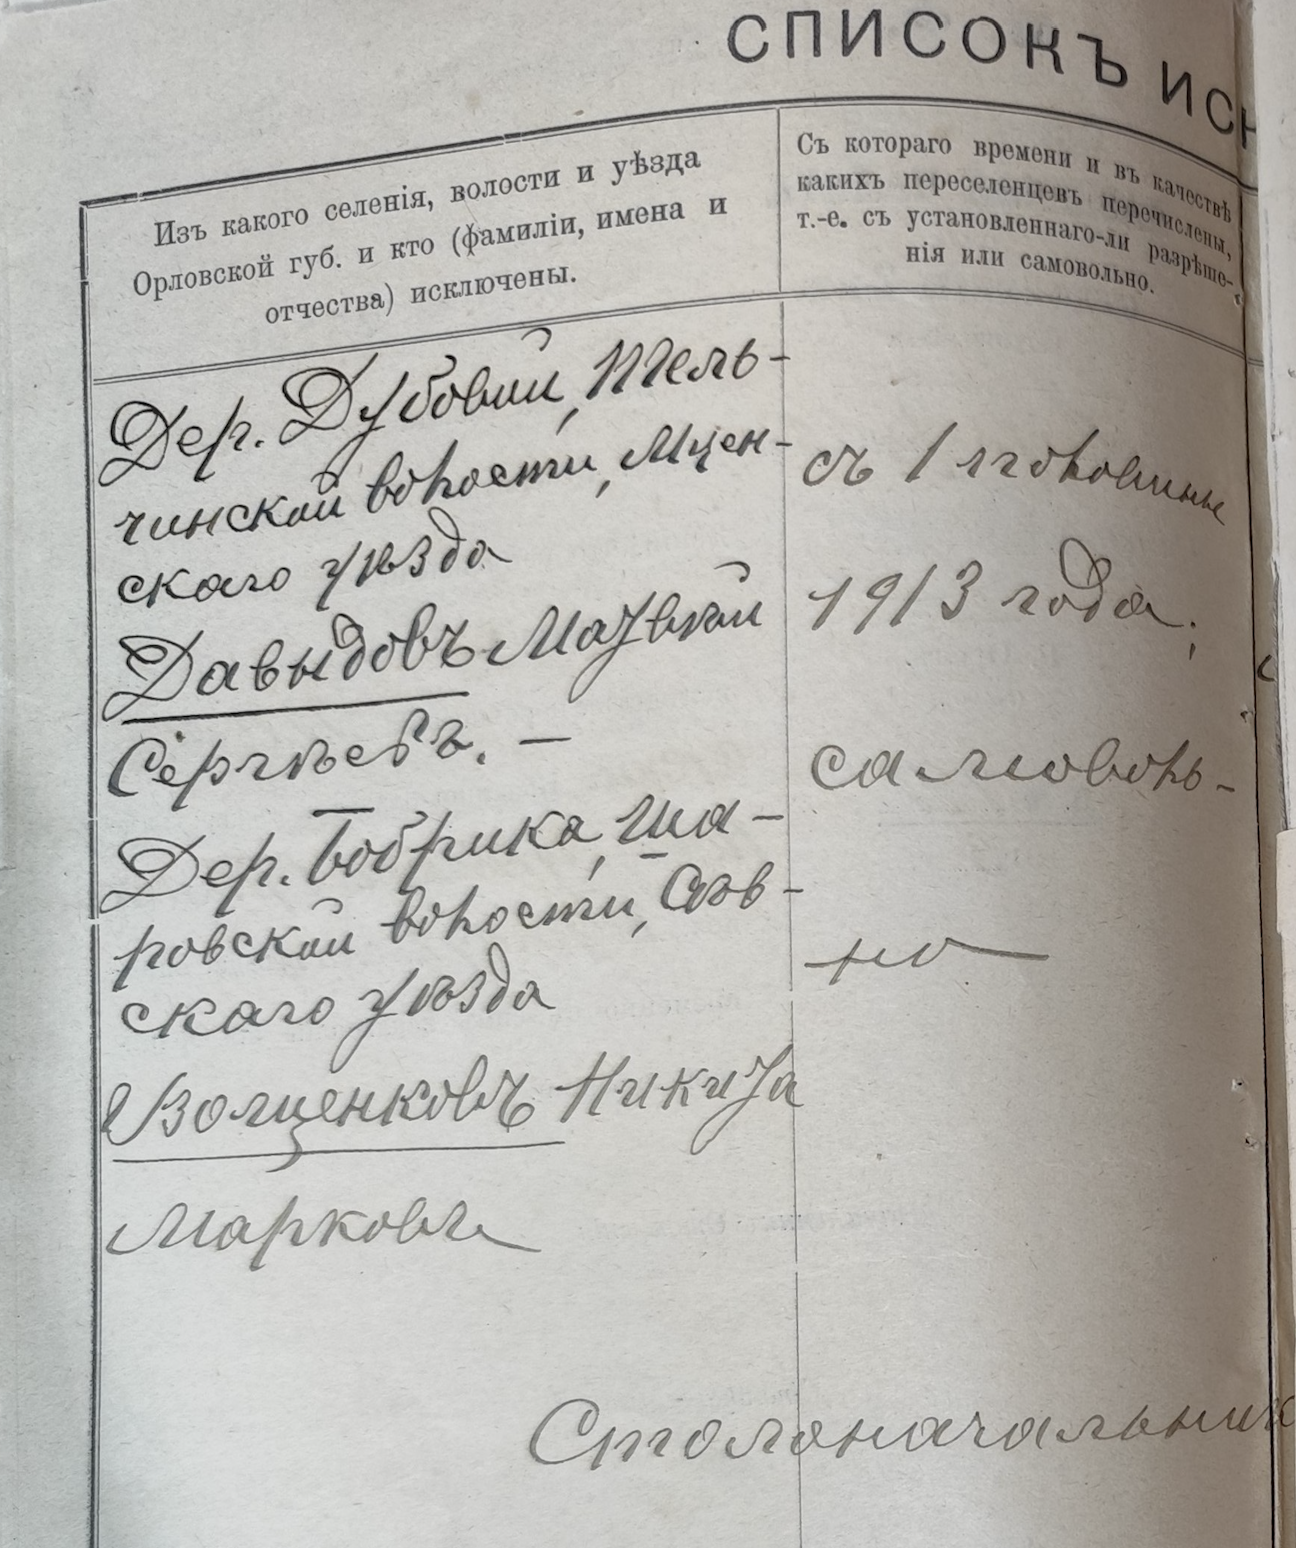 СПИСОКЪ ИСК
Изъ какого селенія, волости и уѣзда
Орловской губ. и кто (фамиліи, имена и
отчества) исключены.
Съ котораго времени и въ качествѣ
какихъ переселенцевъ перечислены,
т.-е. съ установленнаго-ли разрѣше-
нія или самовольно.
Дер. Дубовой, Тель-
чинской волости, Мцен-
скаго уѣзда
Давыдовъ Матвѣй
Сергѣевъ. —
Дер. Бобрика, Ша-
ровской волости, Сѣв-
скаго уѣзда
Волченковъ Никита
Марковъ
съ 1 половины
1913 года;
самоволь-
но
Столоначальник